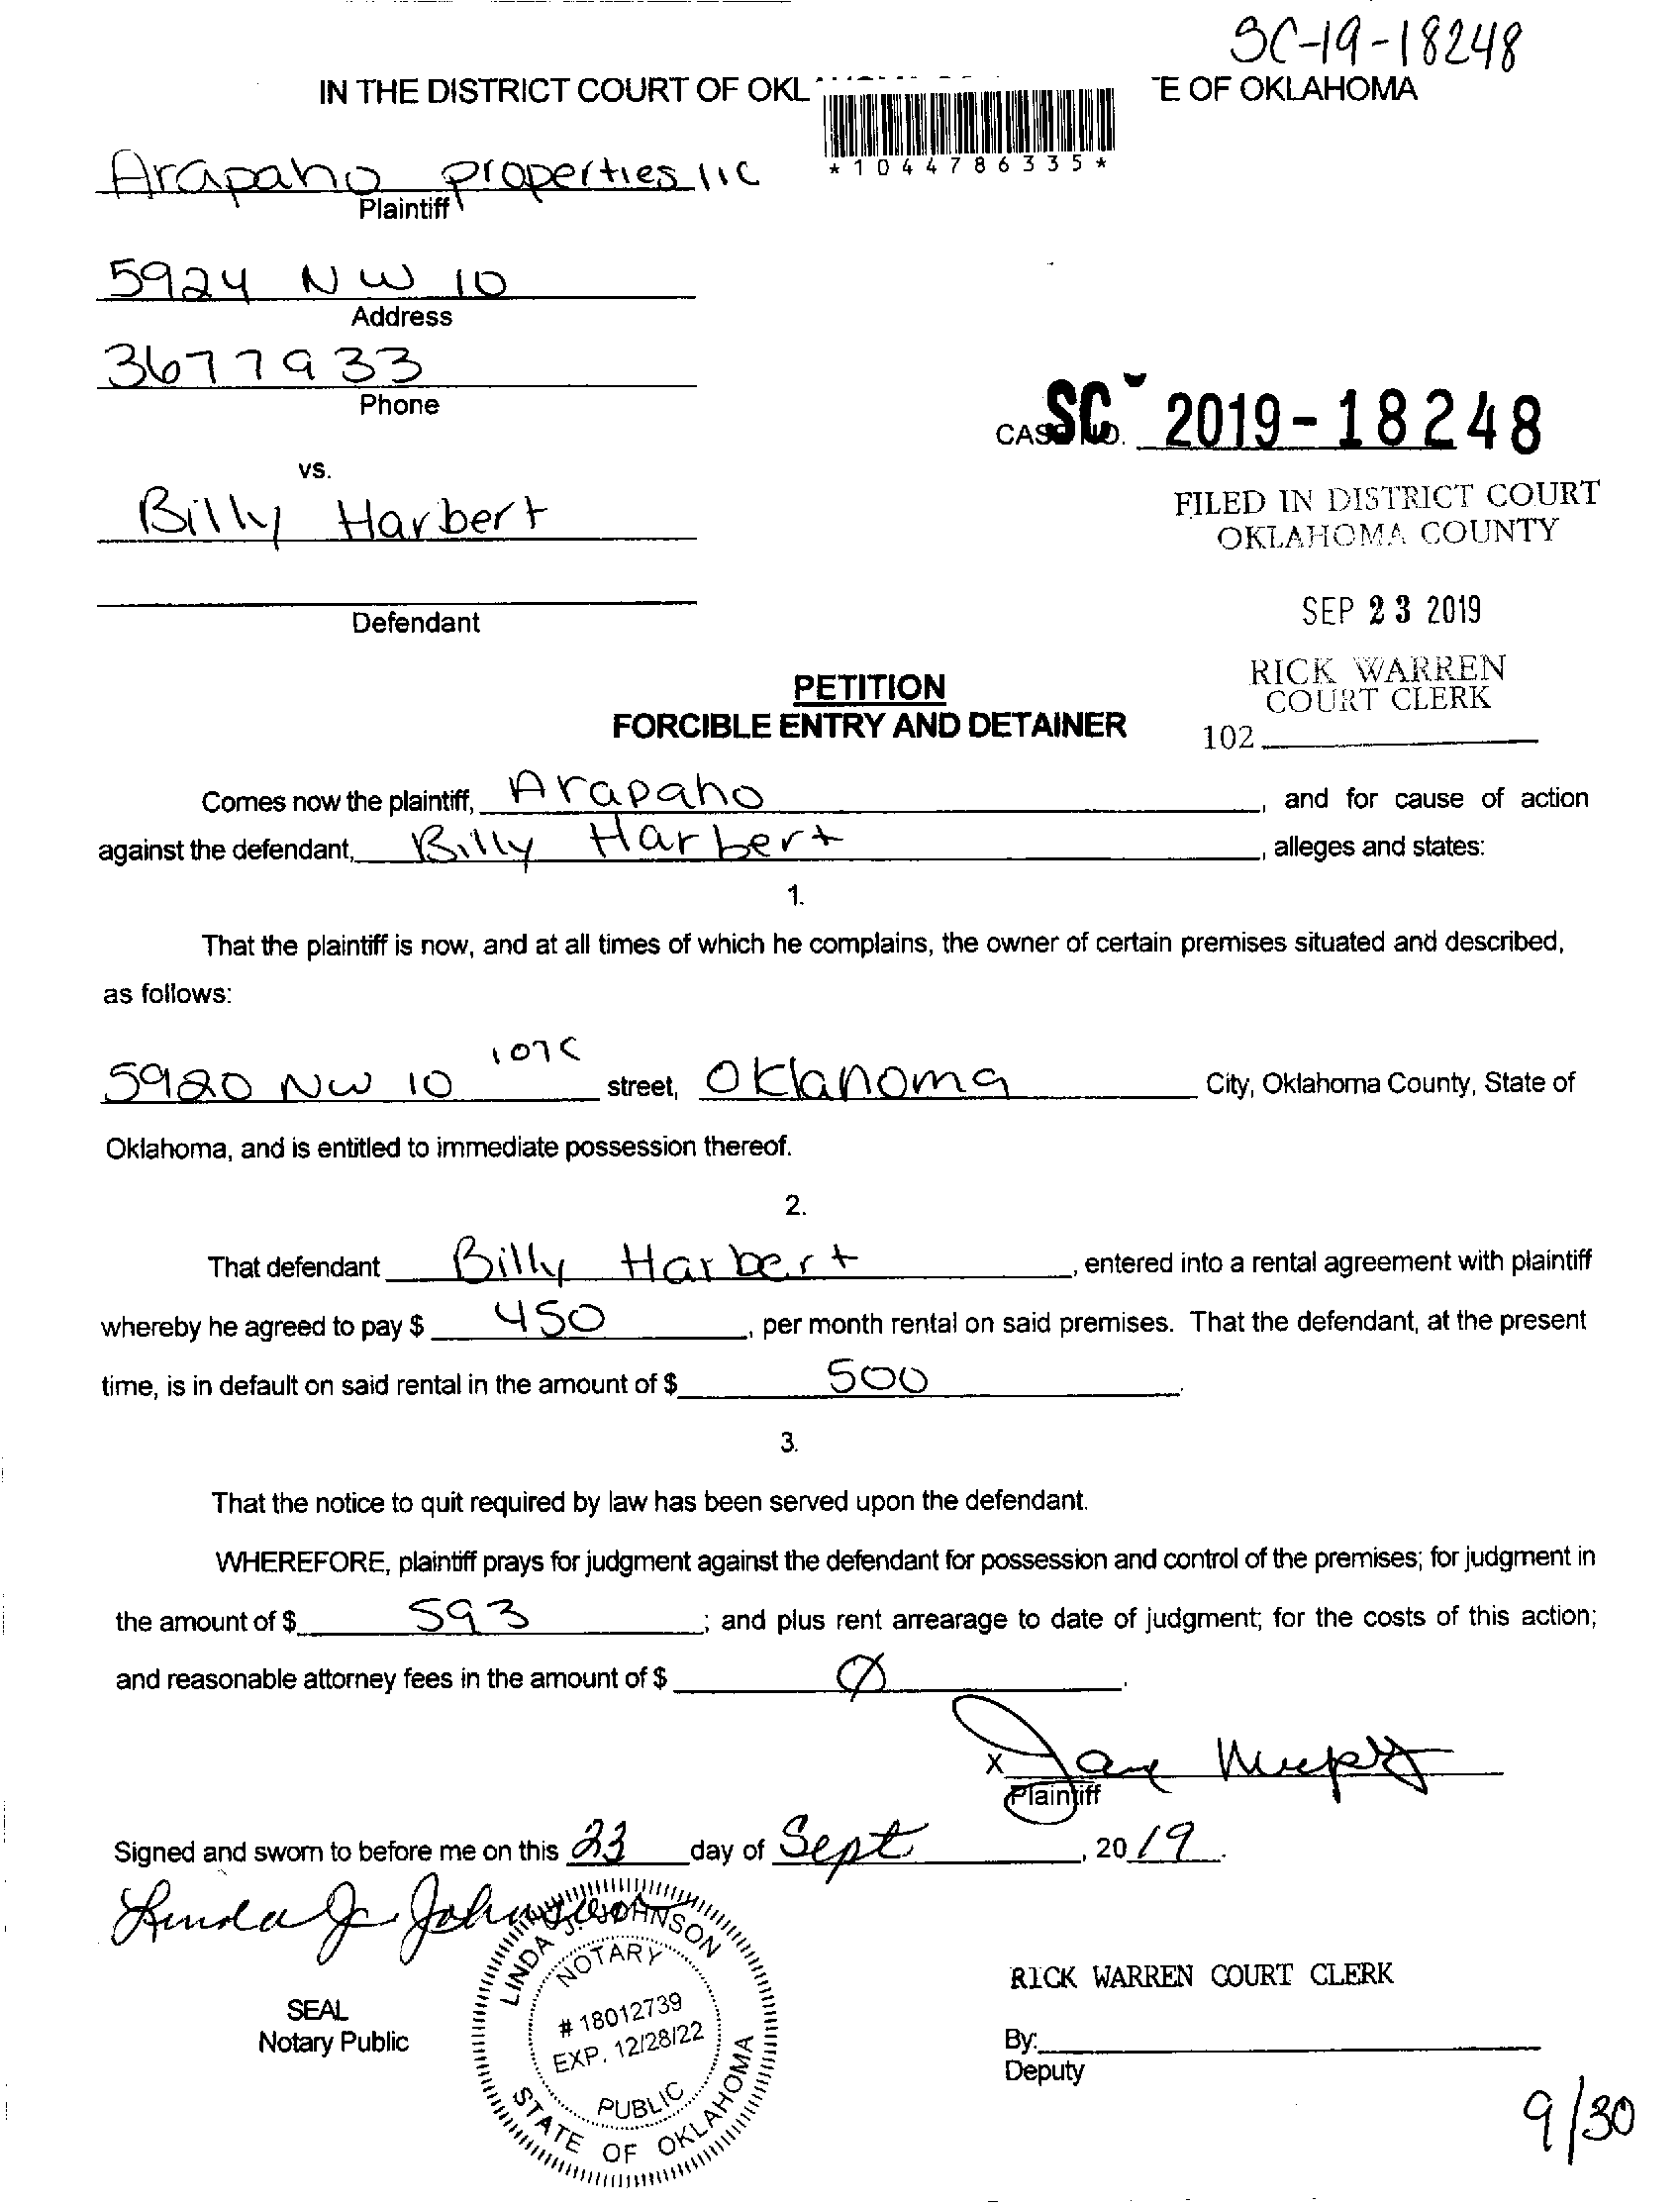 SC-19-18248
IN THE DISTRICT COURT OF OKL E OF OKLAHOMA
*1044786335*
Arapaho properties llc
Plaintiff
5924 NW 10
Address
3677933
Phone
CASE NO. SC 2019-18248
vs.
Billy Harbert
FILED IN DISTRICT COURT
OKLAHOMA COUNTY
Defendant
SEP 23 2019
RICK WARREN
COURT CLERK
102
PETITION
FORCIBLE ENTRY AND DETAINER
Comes now the plaintiff, Arapaho, and for cause of action
against the defendant, Billy Harbert, alleges and states:
1.
That the plaintiff is now, and at all times of which he complains, the owner of certain premises situated and described,
as follows:
5920 NW 10 107C street, Oklahoma City, Oklahoma County, State of
Oklahoma, and is entitled to immediate possession thereof.
2.
That defendant Billy Harbert, entered into a rental agreement with plaintiff
whereby he agreed to pay $ 450, per month rental on said premises. That the defendant, at the present
time, is in default on said rental in the amount of $ 500.
3.
That the notice to quit required by law has been served upon the defendant.
WHEREFORE, plaintiff prays for judgment against the defendant for possession and control of the premises; for judgment in
the amount of $ 593; and plus rent arrearage to date of judgment; for the costs of this action;
and reasonable attorney fees in the amount of $ Ø.
X
Plaintiff
Signed and sworn to before me on this 23 day of Sept, 2019.
Linda J. Johnson
LINDA J. JOHNSON
NOTARY
# 18012739
EXP. 12/28/22
PUBLIC
STATE OF OKLAHOMA
SEAL
Notary Public
RICK WARREN COURT CLERK
By:
Deputy
9/30